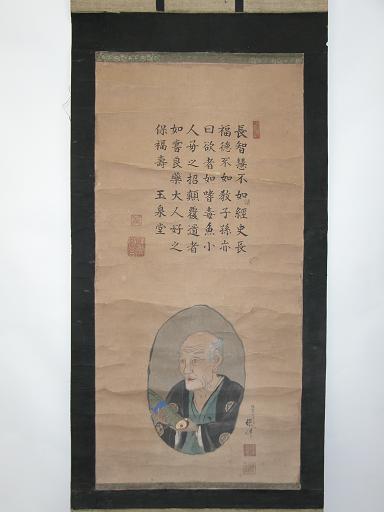 長智慧不如經史長
福德不如教子孫亦
曰欲者如嗜毒魚小
人好之招顛覆道者
如嘗良藥大人好之
保福壽 玉泉堂